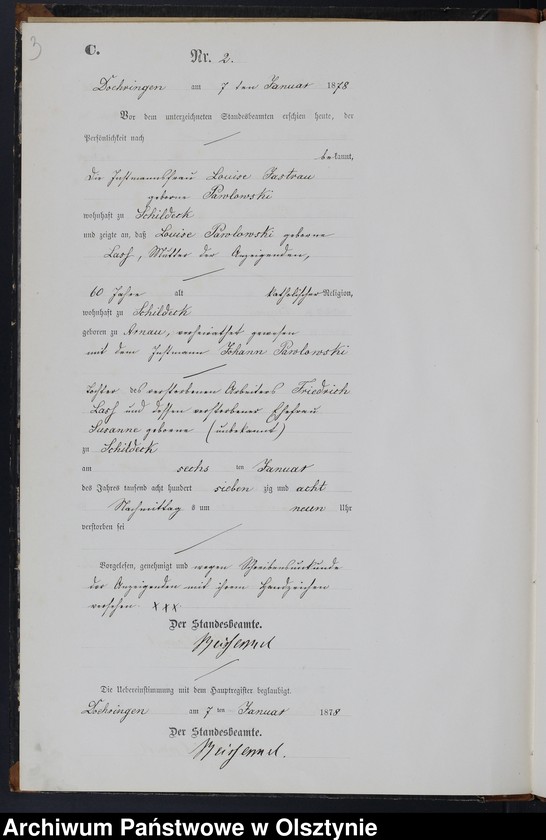 3
C.
Nr. 2.
Doehringen am 7 ten Januar 1878
Vor dem unterzeichneten Standesbeamten erschien heute, der
Persönlichkeit nach
bekannt,
die Instmannsfrau Louise Jastrau
geborne Pawlowski
wohnhaft zu Schildeck
und zeigte an, daß Louise Pawlowski geborne
Lash, Mutter der Anzeigenden,
60 Jahre alt katholischer Religion,
wohnhaft zu Schildeck
geboren zu Arnau, verheirathet gewesen
mit dem Instmann Johann Pawlowski
Tochter des verstorbenen Arbeiters Friedrich
Lash und dessen verstorbener Ehefrau
Susanne geborne (unbekannt)
zu Schildeck
am sechs ten Januar
des Jahres tausend acht hundert sieben zig und acht
Nachmittag s um neun Uhr
verstorben sei
Vorgelesen, genehmigt und wegen Schreibensunkunde
der Anzeigenden mit ihrem Handzeichen
versehen xxx
Der Standesbeamte.
Die Uebereinstimmung mit dem Hauptregister beglaubigt.
Doehringen am 7 ten Januar 1878
Der Standesbeamte.
Archiwum Państwowe w Olsztynie